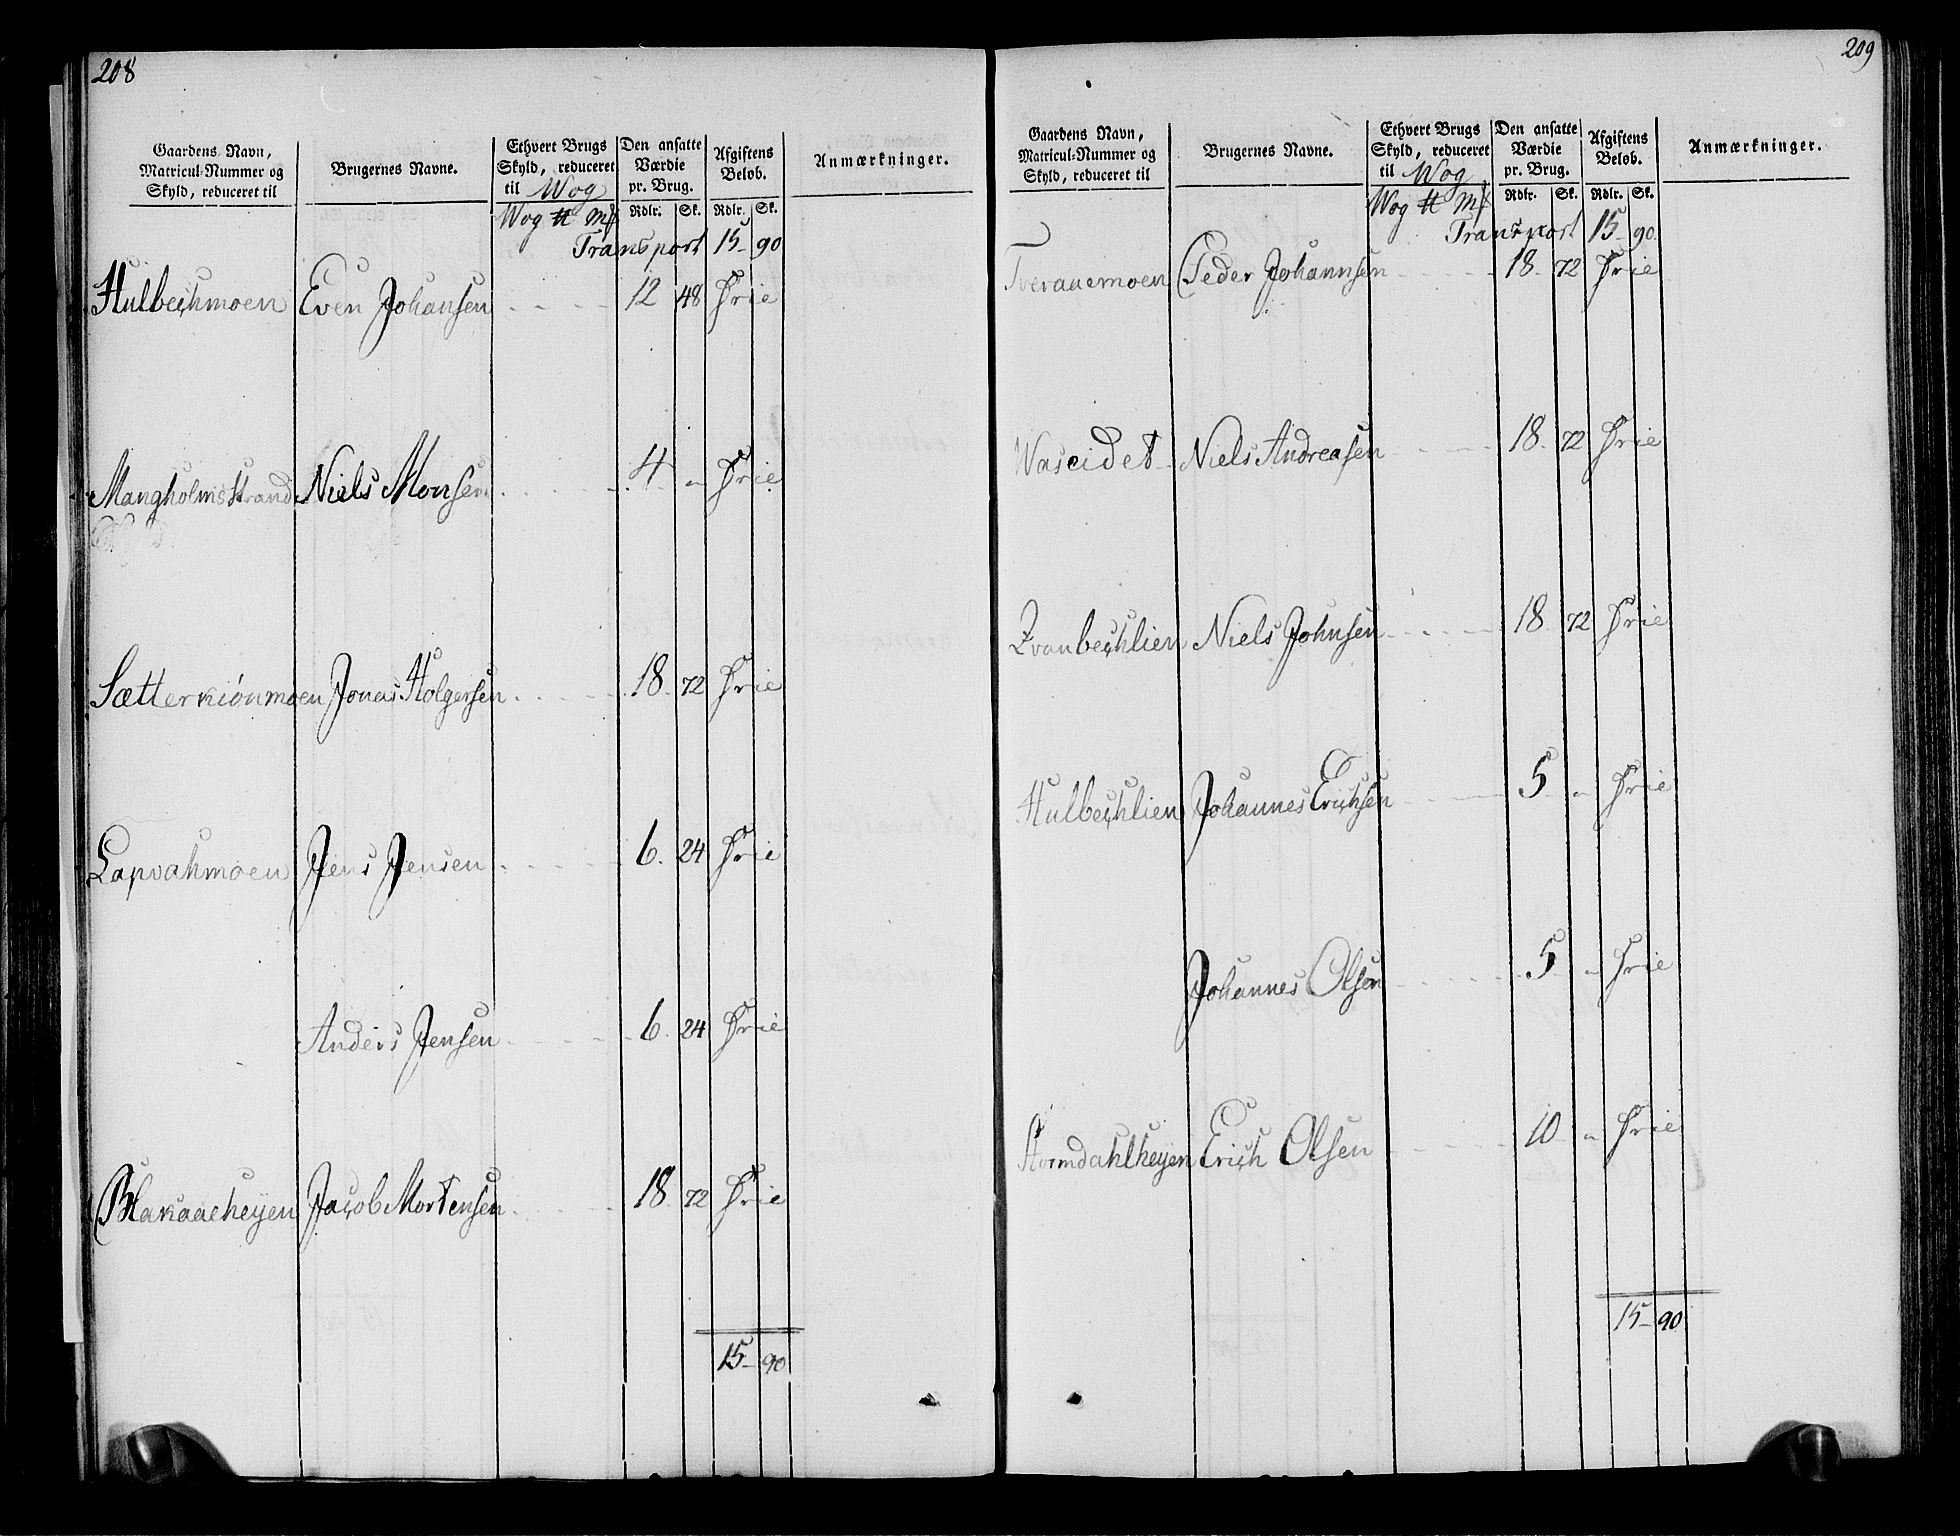 208
Gaardens Navn, Matricul-Nummer og Skyld, reduceret til | Brugernes Navne. | Ethvert Brugs Skyld, reduceret til Wog | Den ansatte Værdie pr. Brug. | Afgiftens Beløb. | Anmærkninger.
Wog ℔ Mk | Rdlr. | Sk. | Rdlr. | Sk.
Transport 15 - 90
Hulbechmoen Even Johansen 12 48 Frie
Mangholmstrand Niels Monsen 4 " Frie
Sætterkiønmoen Jonas Holgersen 18 72 Frie
Lapvahmoen Jens Jensen 6. 24 Frie
Anders Jensen 6 24 Frie
Blakaaeheyen Jacob Mortensen 18 72 Frie
15 - 90
209
Gaardens Navn, Matricul-Nummer og Skyld, reduceret til | Brugernes Navne. | Ethvert Brugs Skyld, reduceret til Wog | Den ansatte Værdie pr. Brug. | Afgiftens Beløb. | Anmærkninger.
Wog ℔ Mk | Rdlr. | Sk. | Rdlr. | Sk.
Transport 15 - 90
Tveraaemoen Peder Johannsen 18. 72 Frie
Waseidet Niels Andreasen 18. 72 Frie
Niels Johnsen 18 72 Frie
Hulbechlien Johannes Erichsen 5 " Frie
Johannes Olsen 5 " Frie
Stormdahlheyen Erich Olsen 10 " Frie
15 - 90